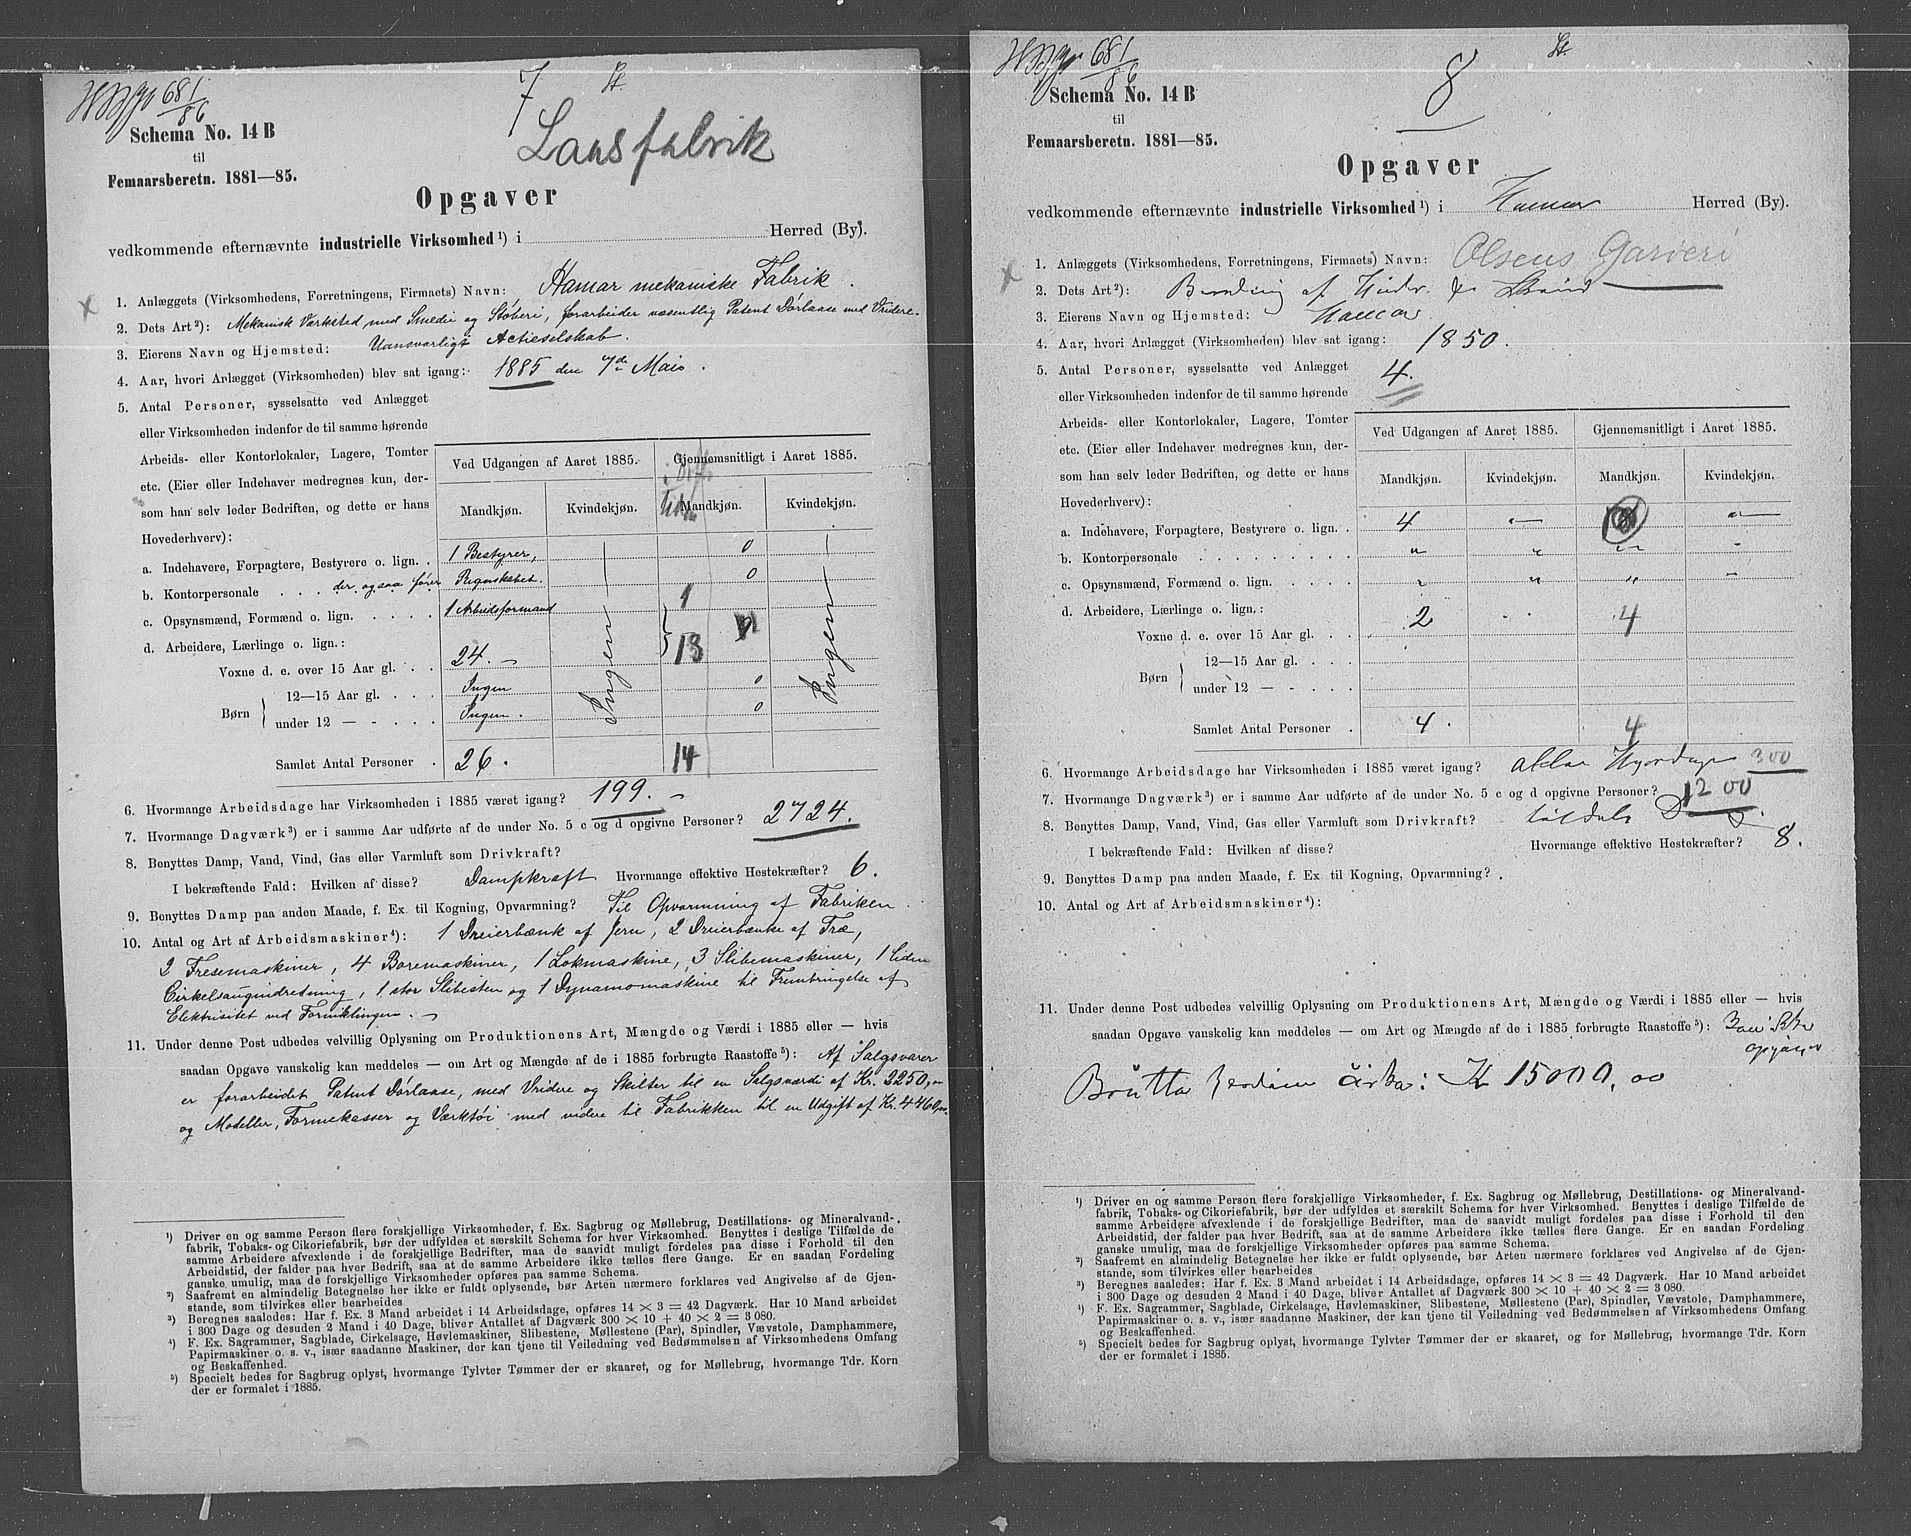 681
86
7
St.
Schema No. 14 B
til
Femaarsberetn. 1881—85.
Laasfabrik
Opgaver
vedkommende efternævnte industrielle Virksomhed¹) i Herred (By).
1. Anlæggets (Virksomhedens, Forretningens, Firmaets) Navn: Hamar mekaniske Fabrik.
2. Dets Art²): Mekanisk Værksted med Smedie og Støberi, forarbeider væsentlig Patent Dörlaase med Vridere.
3. Eierens Navn og Hjemsted: Uansvarligt Actieselskab.
4. Aar, hvori Anlægget (Virksomheden) blev sat igang: 1885 den 7de Maio.
5. Antal Personer, sysselsatte ved Anlægget
eller Virksomheden indenfor de til samme hørende
Arbeids- eller Kontorlokaler, Lagere, Tomter
etc. (Eier eller Indehaver medregnes kun, der-
som han selv leder Bedriften, og dette er hans
Hovederhverv):
Ved Udgangen af Aaret 1885. Gjennemsnitligt i Aaret 1885.
Mandkjøn. Kvindekjøn. Mandkjøn. Kvindekjøn.
a. Indehavere, Forpagtere, Bestyrere o. lign. . 1 Bestyrer, 0
b. Kontorpersonale . . . der ogsaa fører Regnskabet. 0
c. Opsynsmænd, Formænd o. lign. . . . . . 1 Arbeidsformand 1
d. Arbeidere, Lærlinge o. lign.:
Voxne d. e. over 15 Aar gl. . . 24. — Ingen 13 Ingen
Børn 12—15 Aar gl. . . . . Ingen 0
under 12 — - . . . . Ingen. 0
Samlet Antal Personer . 26. 14
6. Hvormange Arbeidsdage har Virksomheden i 1885 været igang? 199. —
7. Hvormange Dagværk³) er i samme Aar udførte af de under No. 5 c og d opgivne Personer? 2724.
8. Benyttes Damp, Vand, Vind, Gas eller Varmluft som Drivkraft?
I bekræftende Fald: Hvilken af disse? Dampkraft Hvormange effektive Hestekræfter? 6.
9. Benyttes Damp paa anden Maade, f. Ex. til Kogning, Opvarmning? Til Opvarmning af Fabriken.
10. Antal og Art af Arbeidsmaskiner⁴): 1 Dreierbænk af Jern, 2 Dreierbænke af Træ,
2 Fresemaskiner, 4 Boremaskiner, 1 Lokmaskine, 3 Slibemaskiner, 1 liden
Cirkelsaugindretning, 1 stor Slibesten og 1 Dynamomaskine til Frembringelse af
Elektrisitet ved Forniklingen. —
11. Under denne Post udbedes velvillig Oplysning om Produktionens Art, Mængde og Værdi i 1885 eller — hvis
saadan Opgave vanskelig kan meddeles — om Art og Mængde af de i 1885 forbrugte Raastoffe⁵): Af Salgsvarer
er forarbeidet Patent Dörlaase, med Vridere og Skilter til en Salgsværdi af Kr. 2250,
og Modeller, Formekasser og Værktöi med videre til Fabrikken til en Udgift af Kr. 4460,
¹) Driver en og samme Person flere forskjellige Virksomheder, f. Ex. Sagbrug og Møllebrug, Destillations- og Mineralvand-
fabrik, Tobaks- og Cikoriefabrik, bør der udfyldes et særskilt Schema for hver Virksomhed. Benyttes i deslige Tilfælde de
samme Arbeidere afvexlende i de forskjellige Bedrifter, maa de saavidt muligt fordeles paa disse i Forhold til den
Arbeidstid, der falder paa hver Bedrift, saa at de samme Arbeidere ikke tælles flere Gange. Er en saadan Fordeling
ganske umulig, maa de forskjellige Virksomheder opføres paa samme Schema.
²) Saafremt en almindelig Betegnelse her ikke er fuldt oplysende, bør Arten nærmere forklares ved Angivelse af de Gjen-
stande, som tilvirkes eller bearbeides
³) Beregnes saaledes: Har f. Ex. 3 Mand arbeidet i 14 Arbeidsdage, opføres 14 × 3 = 42 Dagværk. Har 10 Mand arbeidet
i 300 Dage og desuden 2 Mand i 40 Dage, bliver Antallet af Dagværk 300 × 10 + 40 × 2 = 3 080.
⁴) F. Ex. Sagrammer, Sagblade, Cirkelsage, Høvlemaskiner, Slibestene, Møllestene (Par), Spindler, Vævstole, Damphammere,
Papirmaskiner o. s. v., især saadanne Maskiner, der kan tjene til Veiledning ved Bedømmelsen af Virksomhedens Omfang
og Beskaffenhed.
⁵) Specielt bedes for Sagbrug oplyst, hvormange Tylvter Tømmer der er skaaret, og for Møllebrug, hvormange Tdr. Korn
der er formalet i 1885.
681
86
8
St.
Schema No. 14 B
til
Femaarsberetn. 1881—85.
Opgaver
vedkommende efternævnte industrielle Virksomhed¹) i Hamar Herred (By).
1. Anlæggets (Virksomhedens, Forretningens, Firmaets) Navn: Olsens Garveri
2. Dets Art²): af Huder
3. Eierens Navn og Hjemsted: Hamar
4. Aar, hvori Anlægget (Virksomheden) blev sat igang: 1850.
5. Antal Personer, sysselsatte ved Anlægget 4.
eller Virksomheden indenfor de til samme hørende
Arbeids- eller Kontorlokaler, Lagere, Tomter
etc. (Eier eller Indehaver medregnes kun, der-
som han selv leder Bedriften, og dette er hans
Hovederhverv):
Ved Udgangen af Aaret 1885. Gjennemsnitligt i Aaret 1885.
Mandkjøn. Kvindekjøn. Mandkjøn. Kvindekjøn.
a. Indehavere, Forpagtere, Bestyrere o. lign. . 4 "— "—
b. Kontorpersonale . . . . . . . . . . " " " "
c. Opsynsmænd, Formænd o. lign. . . . . . " " " —
d. Arbeidere, Lærlinge o. lign.: 2 4
Voxne d. e. over 15 Aar gl. . .
Børn 12—15 Aar gl. . . . .
under 12 — - . . . .
Samlet Antal Personer . 4. 4
6. Hvormange Arbeidsdage har Virksomheden i 1885 været igang? 300
7. Hvormange Dagværk³) er i samme Aar udførte af de under No. 5 c og d opgivne Personer? 1200
8. Benyttes Damp, Vand, Vind, Gas eller Varmluft som Drivkraft?
I bekræftende Fald: Hvilken af disse? Hvormange effektive Hestekræfter? 8.
9. Benyttes Damp paa anden Maade, f. Ex. til Kogning, Opvarmning? .
10. Antal og Art af Arbeidsmaskiner⁴):
11. Under denne Post udbedes velvillig Oplysning om Produktionens Art, Mængde og Værdi i 1885 eller — hvis
saadan Opgave vanskelig kan meddeles — om Art og Mængde af de i 1885 forbrugte Raastoffe⁵):
Brutto cirka: Kr 15000,00
¹) Driver en og samme Person flere forskjellige Virksomheder, f. Ex. Sagbrug og Møllebrug, Destillations- og Mineralvand-
fabrik, Tobaks- og Cikoriefabrik, bør der udfyldes et særskilt Schema for hver Virksomhed. Benyttes i deslige Tilfælde de
samme Arbeidere afvexlende i de forskjellige Bedrifter, maa de saavidt muligt fordeles paa disse i Forhold til den
Arbeidstid, der falder paa hver Bedrift, saa at de samme Arbeidere ikke tælles flere Gange. Er en saadan Fordeling
ganske umulig, maa de forskjellige Virksomheder opføres paa samme Schema.
²) Saafremt en almindelig Betegnelse her ikke er fuldt oplysende, bør Arten nærmere forklares ved Angivelse af de Gjen-
stande, som tilvirkes eller bearbeides
³) Beregnes saaledes: Har f. Ex. 3 Mand arbeidet i 14 Arbeidsdage, opføres 14 × 3 = 42 Dagværk. Har 10 Mand arbeidet
i 300 Dage og desuden 2 Mand i 40 Dage, bliver Antallet af Dagværk 300 × 10 + 40 × 2 = 3 080.
⁴) F. Ex. Sagrammer, Sagblade, Cirkelsage, Høvlemaskiner, Slibestene, Møllestene (Par), Spindler, Vævstole, Damphammere,
Papirmaskiner o. s. v., især saadanne Maskiner, der kan tjene til Veiledning ved Bedømmelsen af Virksomhedens Omfang
og Beskaffenhed.
⁵) Specielt bedes for Sagbrug oplyst, hvormange Tylvter Tømmer der er skaaret, og for Møllebrug, hvormange Tdr. Korn
der er formalet i 1885.